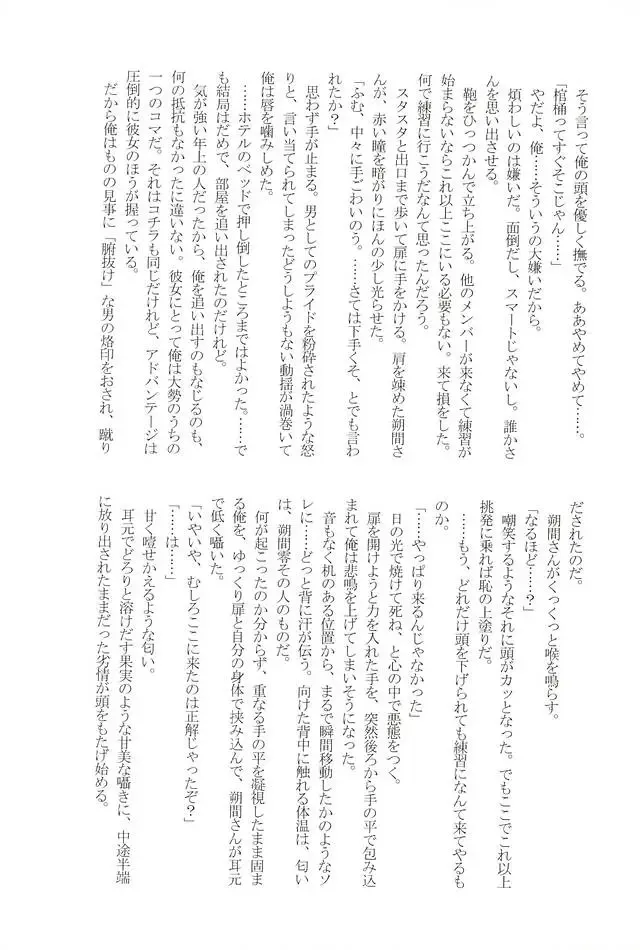 そう言って俺の頭を優しく撫でる。ああやめてやめて……。
「棺桶ってすぐそこじゃん……」
やだよ、俺……そういうの大嫌いだから。
煩わしいのは嫌いだ。面倒だし、スマートじゃないし。誰かさ
んを思い出させる。
鞄をひっつかんで立ち上がる。他のメンバーが来なくて練習が
始まらないならこれ以上ここにいる必要もない。来て損をした。
何で練習に行こうだなんて思ったんだろう。
スタスタと出口まで歩いて扉に手をかける。肩を竦めた朔間さ
んが、赤い瞳を暗がりにほんの少し光らせた。
「ふむ、中々に手ごわいのう。……さては下手くそ、とでも言わ
れたか?」
思わず手が止まる。男としてのプライドを粉砕されたような怒
りと、言い当てられてしまったどうしようもない動揺が渦巻いて
俺は唇を噛みしめた。
……ホテルのベッドで押し倒したところまではよかった。……で
も結局はだめで、部屋を追い出されたのだけれど。
気が強い年上の人だったから、俺を追い出すのもなじるのも、
何の抵抗もなかったに違いない。彼女にとって俺は大勢のうちの
一つのコマだ。それはコチラも同じだけれど、アドバンテージは
圧倒的に彼女のほうが握っている。
だから俺はものの見事に「腑抜け」な男の烙印をおされ、蹴り
だされたのだ。
朔間さんがくっくっと喉を鳴らす。
「なるほど……?」
嘲笑するようなそれに頭がカッとなった。でもここでこれ以上
挑発に乗れば恥の上塗りだ。
……もう、どれだけ頭を下げられても練習になんて来てやるも
のか。
「……やっぱり来るんじゃなかった」
日の光で焼けて死ね、と心の中で悪態をつく。
扉を開けようと力を入れた手を、突然後ろから手の平で包み込
まれて俺は悲鳴を上げてしまいそうになった。
音もなく机のある位置から、まるで瞬間移動したかのようなソ
レに……どっと背に汗が伝う。向けた背中に触れる体温は、匂い
は、朔間零その人のものだ。
何が起こったのか分からず、重なる手の平を凝視したまま固ま
る俺を、ゆっくり扉と自分の身体で挟み込んで、朔間さんが耳元
で低く囁いた。
「いやいや、むしろここに来たのは正解じゃったぞ?」
「……は……」
甘く噎せかえるような匂い。
耳元でどろりと溶けだす果実のような甘美な囁きに、中途半端
に放り出されたままだった劣情が頭をもたげ始める。